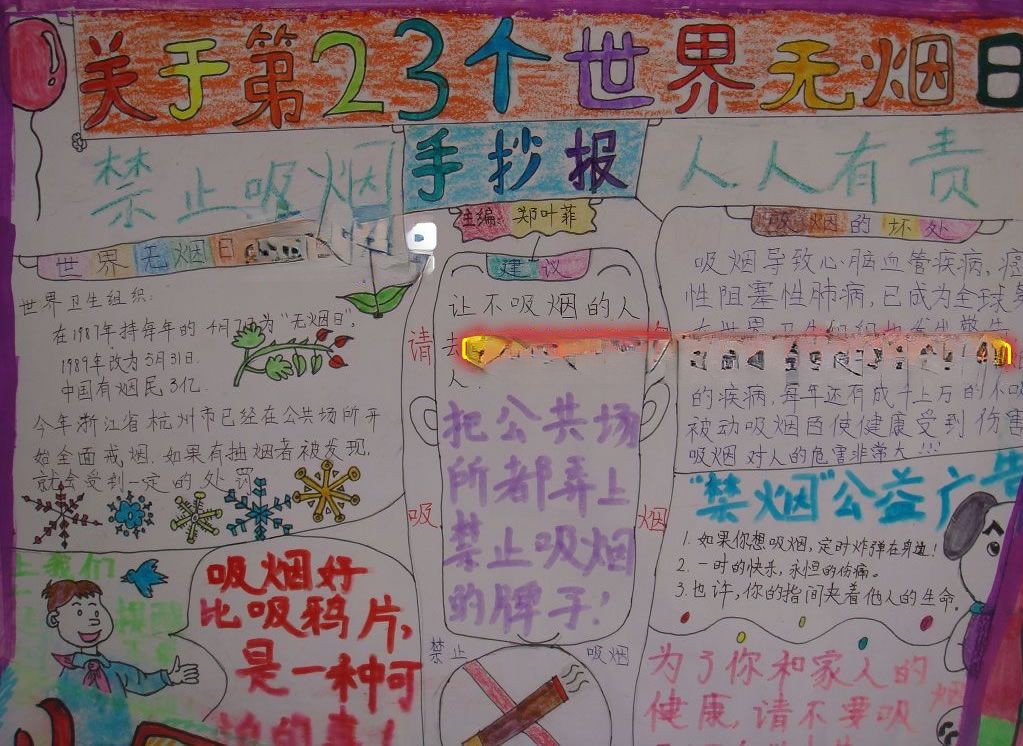 关于第23个世界无烟日
手抄报
禁止吸烟
人人有责
主编：郑叶菲
世界无烟日
世界卫生组织：
在1987年持每年的4月7日为“无烟日”，
1989年改为5月31日.
中国有烟民3亿.
今年浙江省杭州市已经在公共场所开
始全面戒烟.如果有抽烟者被发现，
就会受到一定的处罚
建议
让不吸烟的人
去
人.
把公共场
所都弄上
禁止吸烟
的牌子！
请
吸.
烟
吸烟的坏处
吸烟导致心脑血管疾病，癌
性阻塞性肺病，已成为全球第
的疾病，每年还有成千上万的不吸
被动吸烟
使健康受到伤害
吸烟对人的危害非常大!!!
“禁烟”公益广告
1.如果你想吸烟，定时炸弹在身边！
2.一时的快乐，永恒的伤痛。
3.也许，你的指间夹着他人的生命.
让我们
吸烟好
比吸鸦片，
是一种可
怕的毒！
禁止
吸烟
为了你和家人的
健康，请不要吸
烟